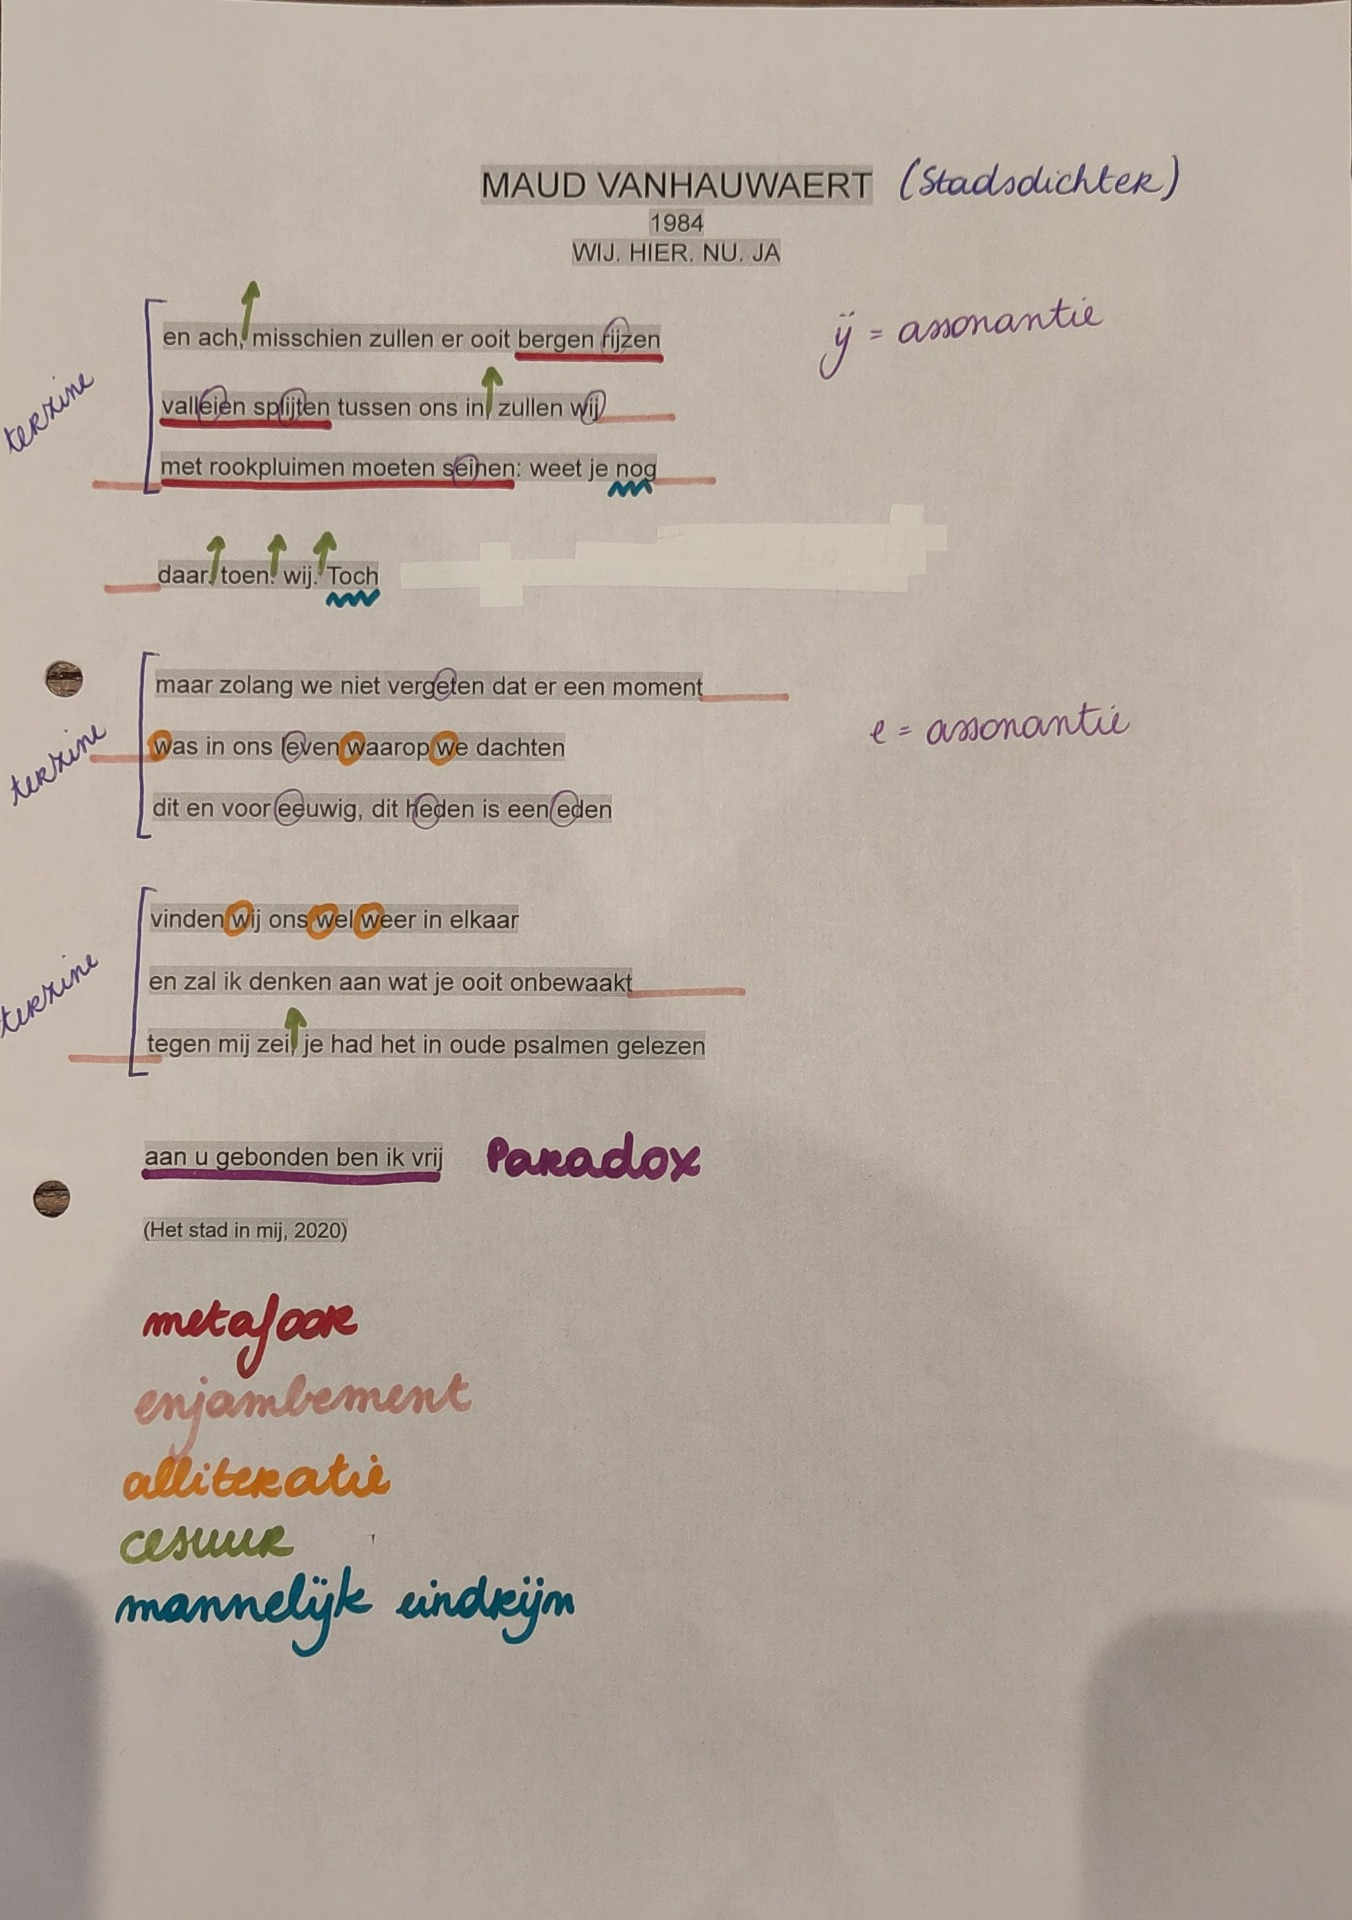 MAUD VANHAUWAERT (Stadsdichter)
1984
WIJ. HIER. NU. JA
en ach, misschien zullen er ooit bergen rijzen
ij = assonantie
valleien splijten tussen ons in, zullen wij
terzine
met rookpluimen moeten seinen: weet je nog
daar. toen. wij. Toch
maar zolang we niet vergeten dat er een moment
e = assonantie
was in ons leven waarop we dachten
terzine
dit en voor eeuwig, dit heden is een eden
vinden wij ons wel weer in elkaar
en zal ik denken aan wat je ooit onbewaakt
terzine
tegen mij zei, je had het in oude psalmen gelezen
aan u gebonden ben ik vrij Paradox
(Het stad in mij, 2020)
metafoor
enjambement
alliteratie
cesuur
mannelijk eindrijm